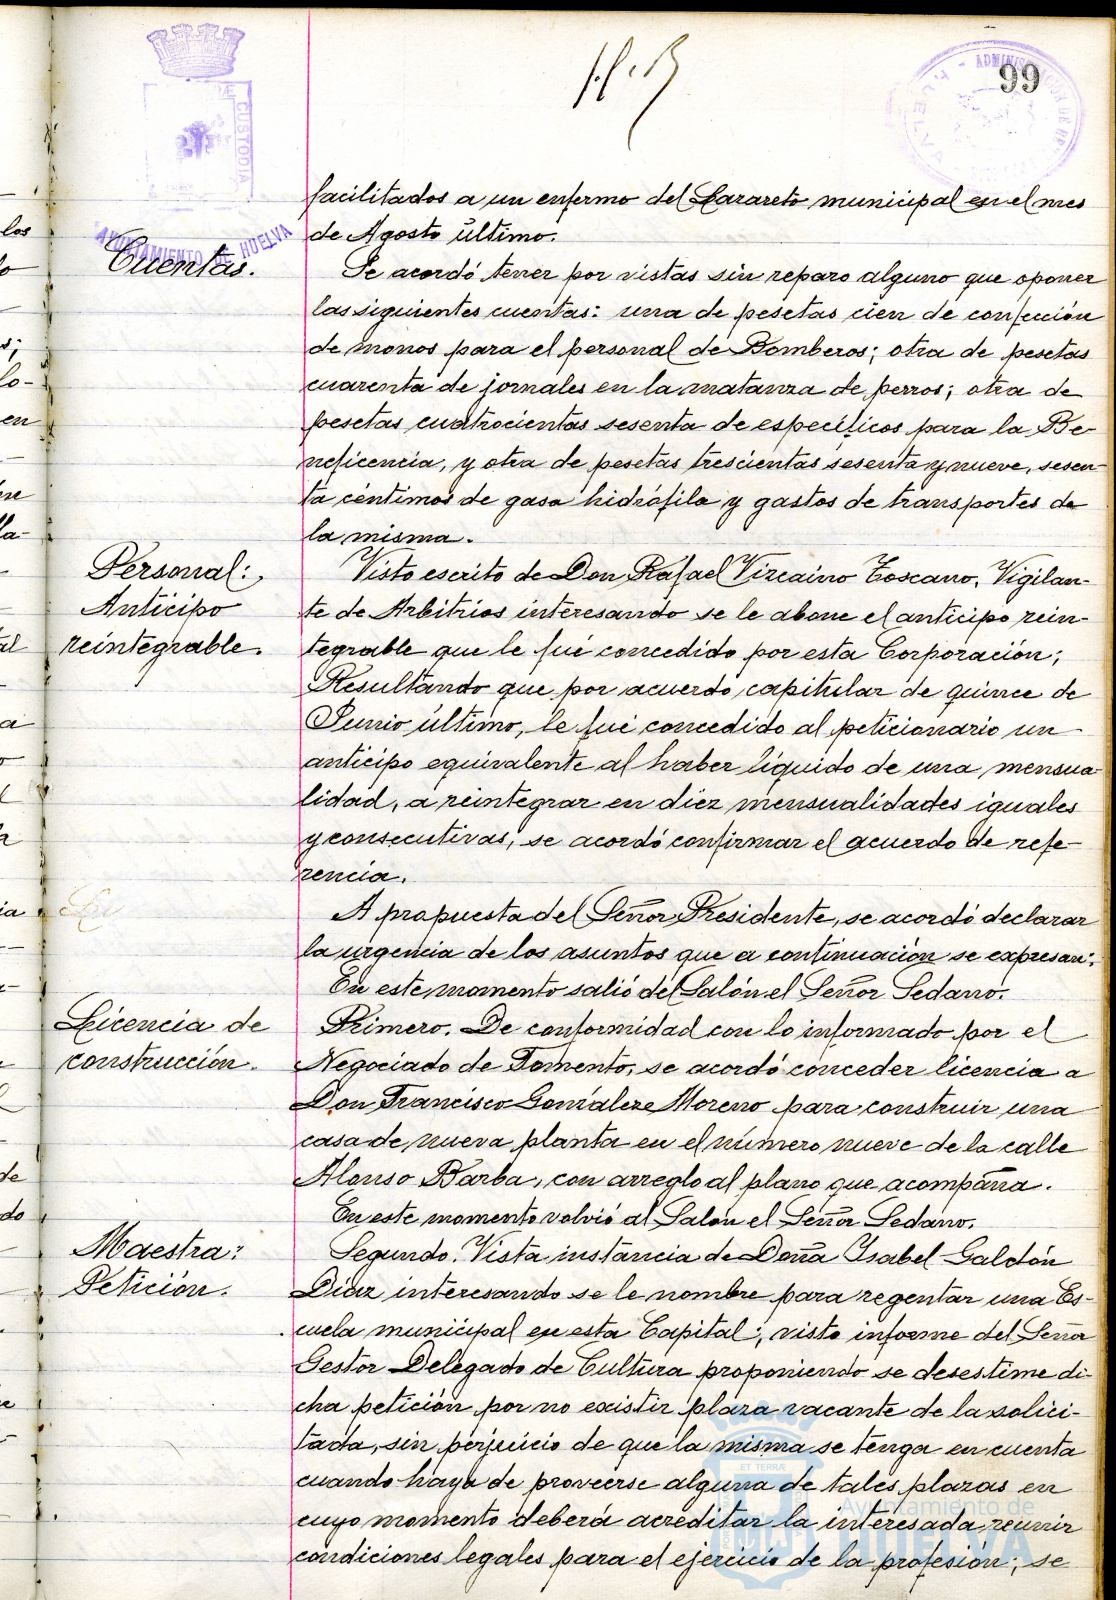 99
ADMINISTRACION DE
HUELVA
DE CUSTODIA
AYUNTAMIENTO DE HUELVA
facilitados a un enfermo del Lazareto municipal en el mes
de Agosto último.
Cuentas.
Se acordó tener por vistas sin reparo alguno que oponer
las siguientes cuentas: una de pesetas cien de confección
de monos para el personal de Bomberos; otra de pesetas
cuarenta de jornales en la matanza de perros; otra de
pesetas cuatrocientas sesenta de específicos para la Be-
neficencia, y otra de pesetas trescientas sesenta y nueve, sesen-
ta céntimos de gasa hidrófila y gastos de transportes de
la misma.
Personal:
Anticipo
reintegrable.
Visto escrito de Don Rafael Vizcaino Toscano, Vigilan-
te de Arbitrios interesando se le abone el anticipo rein-
tegrable que le fué concedido por esta Corporación;
Resultando que por acuerdo capitular de quince de
Junio último, le fué concedido al peticionario un
anticipo equivalente al haber líquido de una mensua-
lidad, a reintegrar en diez mensualidades iguales
y consecutivas, se acordó confirmar el acuerdo de refe-
rencia.
A propuesta del Señor Presidente, se acordó declarar
la urgencia de los asuntos que a continuación se expresan:
En este momento salió del Salón el Señor Sedano.
Licencia de
construcción.
Primero. De conformidad con lo informado por el
Negociado de Fomento, se acordó conceder licencia a
Don Francisco Gonzáleze Moreno para construir una
casa de nueva planta en el número nueve de la calle
Alonso Barba, con arreglo al plano que acompaña.
En este momento volvió al Salón el Señor Sedano.
Maestra:
Petición.
Segundo. Vista instancia de Doña Isabel Galdón
Díaz interesando se le nombre para regentar una Es-
cuela municipal en esta Capital; visto informe del Señor
Gestor Delegado de Cultura proponiendo se desestime di-
cha petición por no existir plaza vacante de la solici-
tada, sin perjuicio de que la misma se tenga en cuenta
cuando haya de proveerse alguna de tales plazas en
cuyo momento deberá acreditar la interesada reunir
condiciones legales para el ejercicio de la profesión; se
Ayuntamiento de
HUELVA